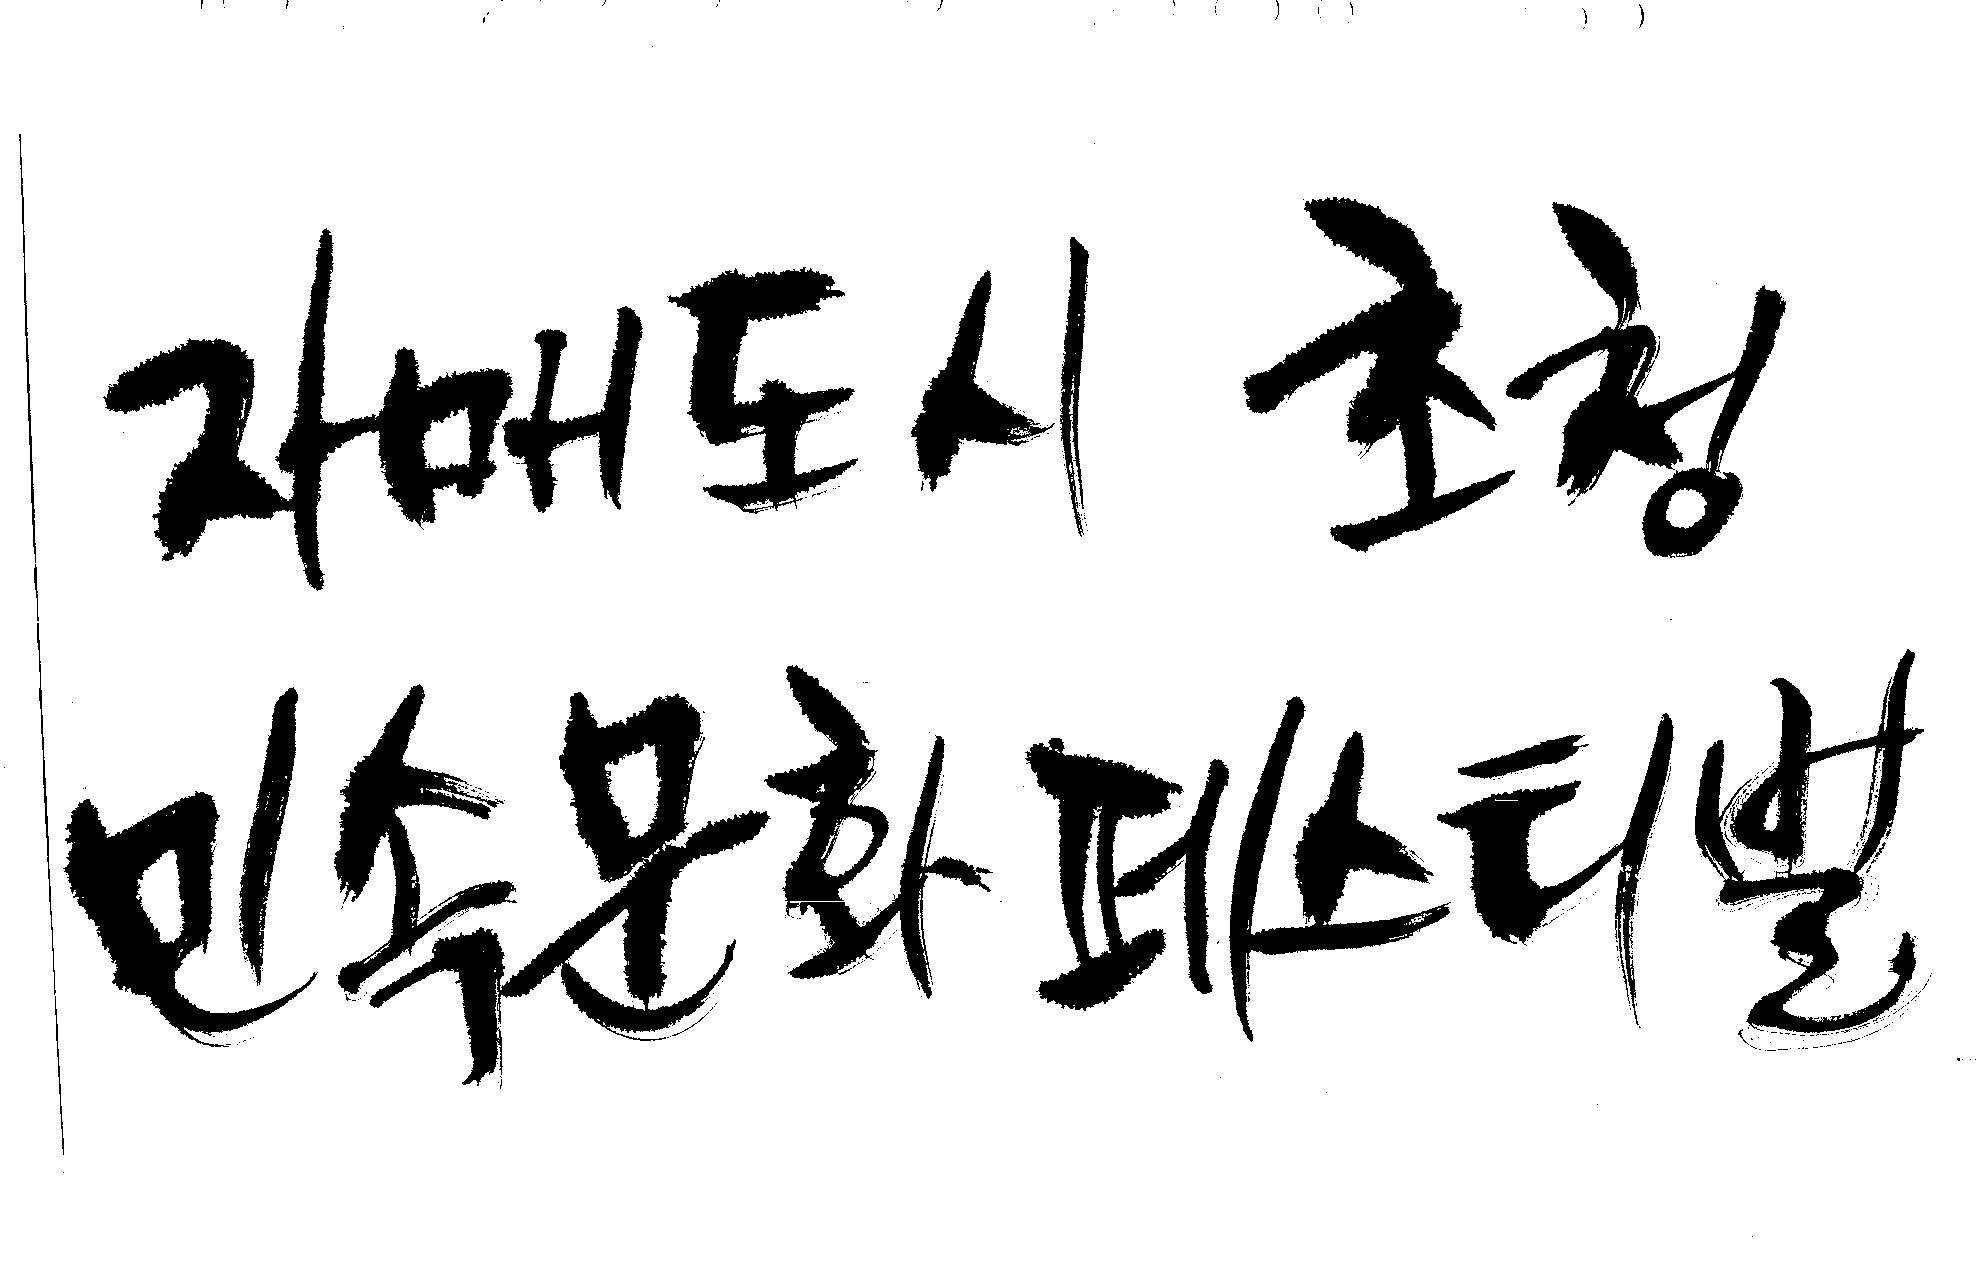 자매도시 초청
민속문화 페스티벌